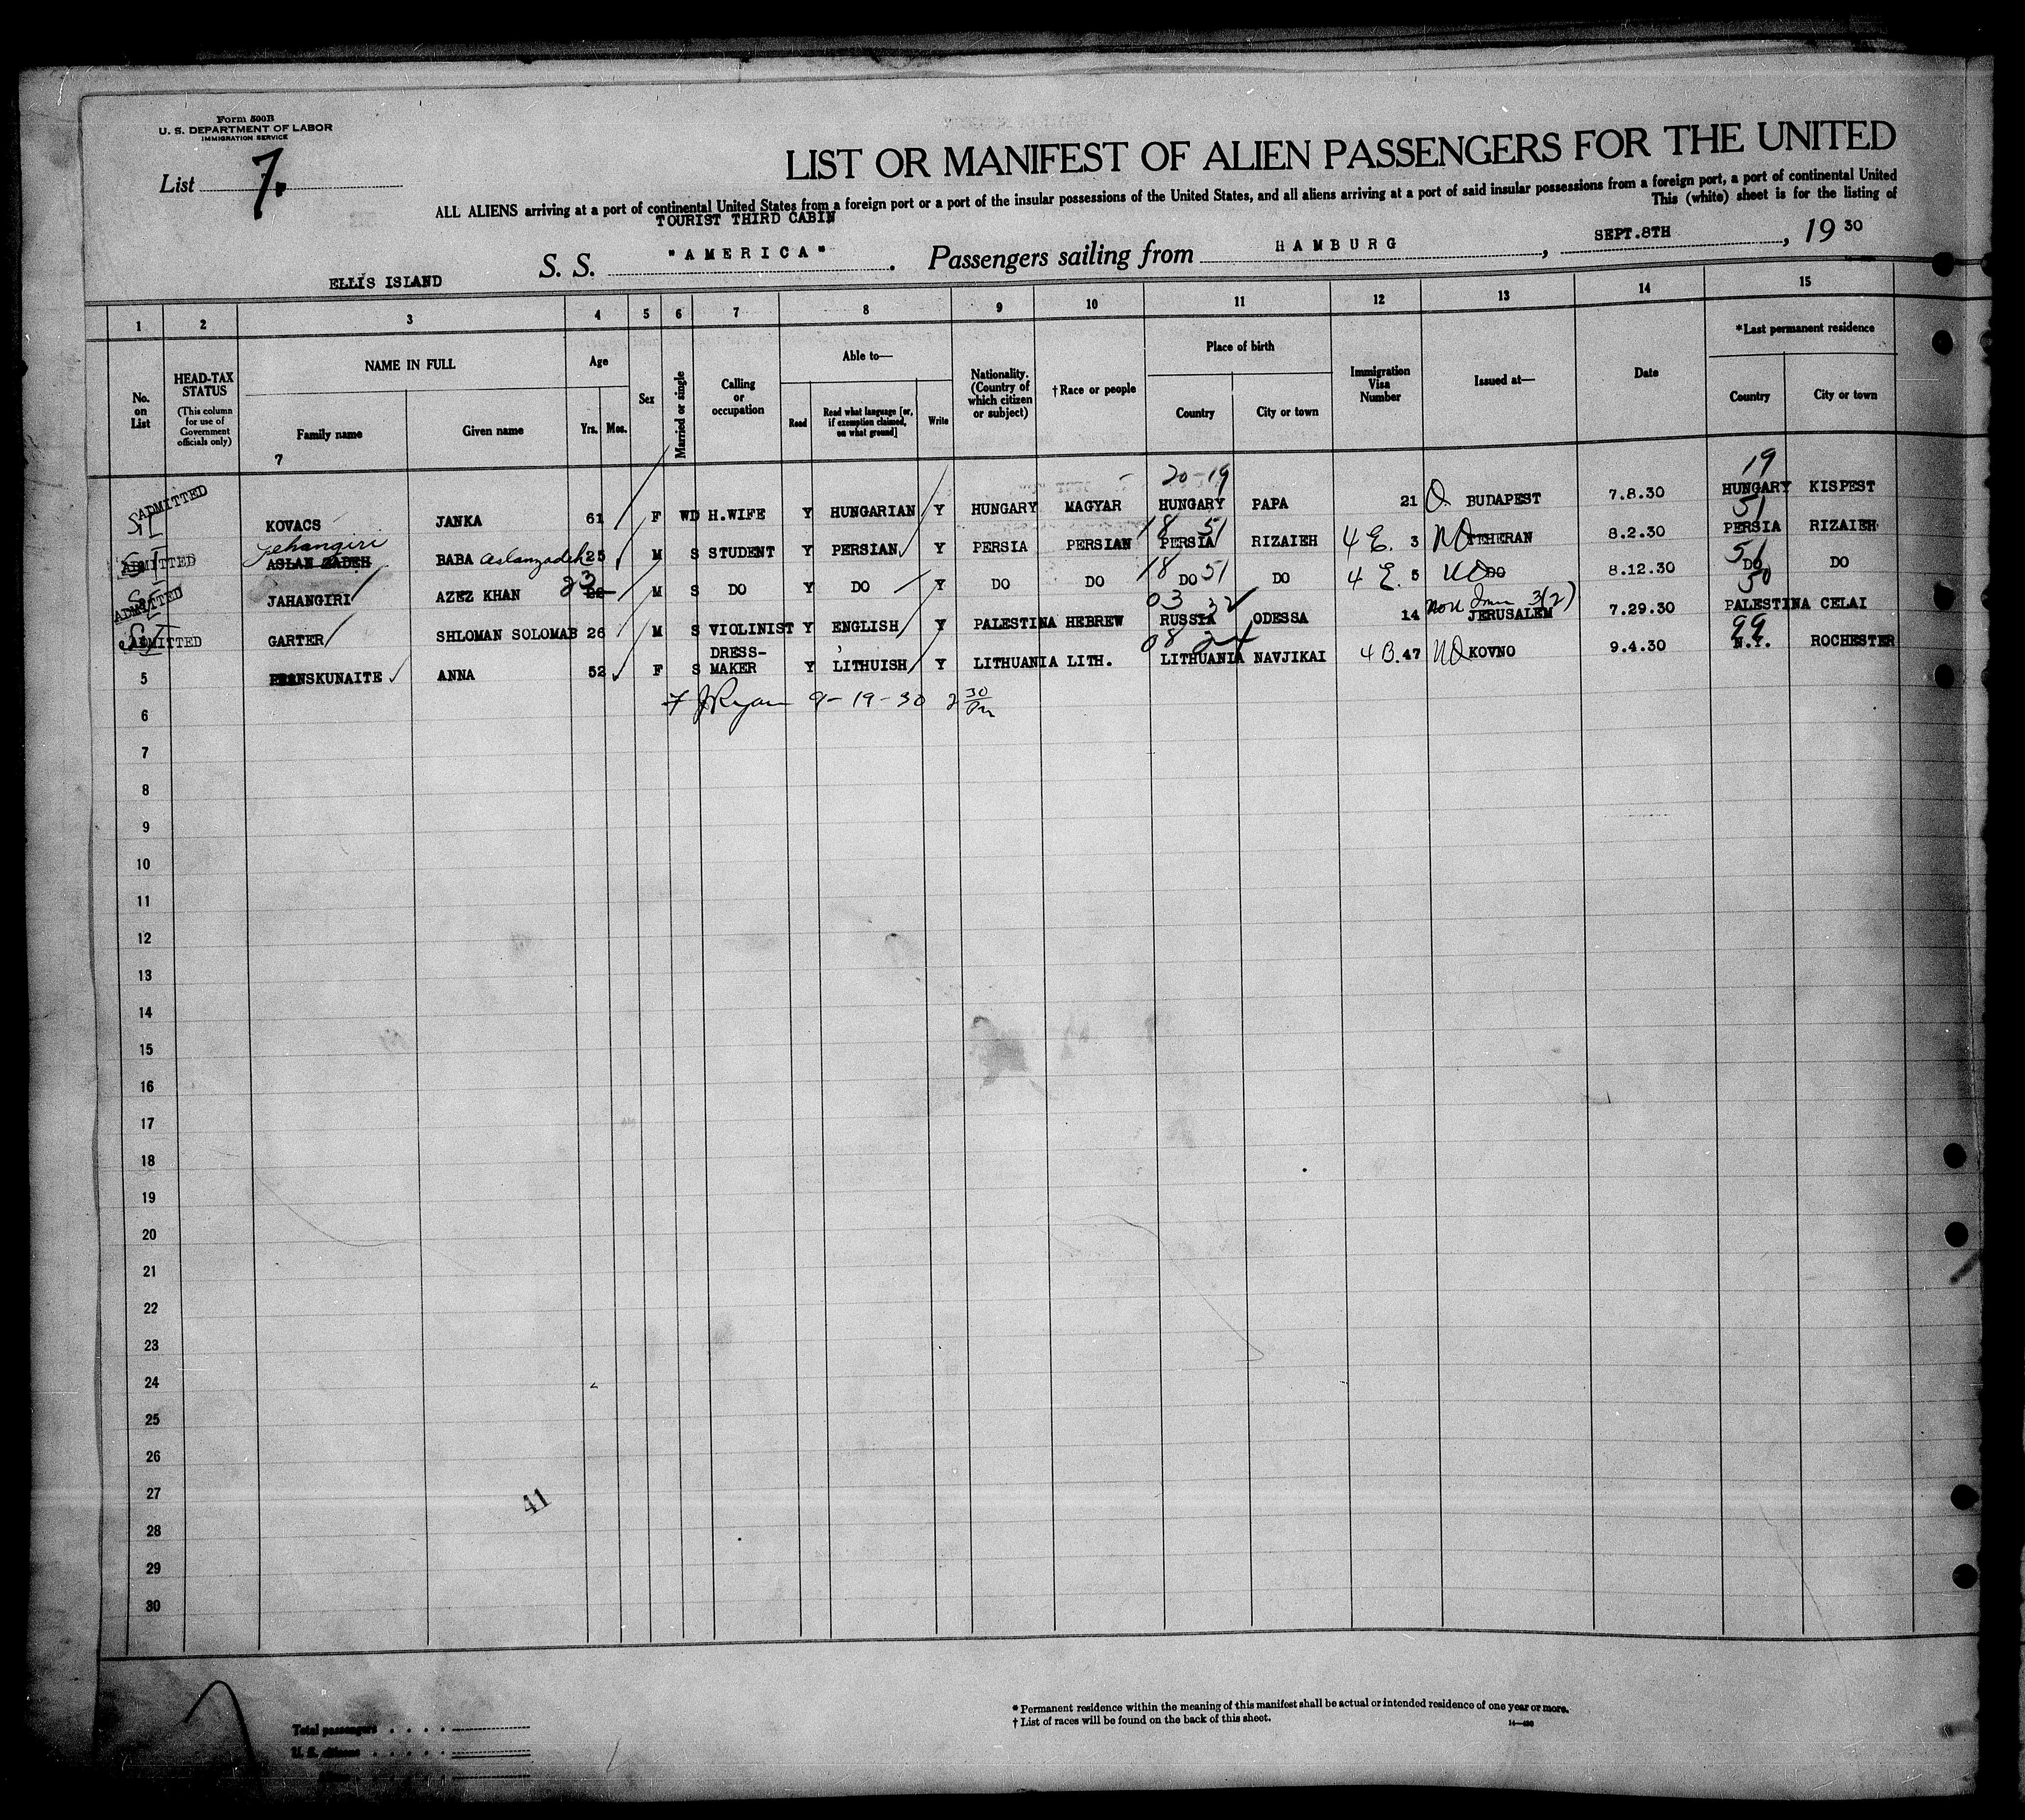 Form 500B
U. S. DEPARTMENT OF LABOR
IMMIGRATION SERVICE
List 7.
LIST OR MANIFEST OF ALIEN PASSENGERS FOR THE UNITED
ALL ALIENS arriving at a port of continental United States from a foreign port or a port of the insular possessions of the United States, and all aliens arriving at a port of said insular possessions from a foreign port, a port of continental United
This (white) sheet is for the listing of
TOURIST THIRD CABIN
ELLIS ISLAND S. S. "AMERICA" . Passengers sailing from HAMBURG , SEPT.8TH , 19 30
1 2 3 4 5 6 7 8 9 10 11 12 13 14 15
No. on List
HEAD-TAX STATUS (This column for use of Government officials only)
NAME IN FULL
Family name
Given name
7
Age
Yrs. Mos.
Sex
Married or single
Calling or occupation
Able to—
Read
Read what language [or, if exemption claimed, on what ground]
Write
Nationality. (Country of which citizen or subject)
† Race or people
Place of birth
Country
City or town
Immigration Visa Number
Issued at—
Date
*Last permanent residence
Country
City or town
20-19 19
ADMITTED SI KOVACS JANKA 61 F WD H.WIFE Y HUNGARIAN Y HUNGARY MAGYAR HUNGARY PAPA 21 BUDAPEST 7.8.30 HUNGARY KISPEST
Jehangiri 18 51 51
ADMITTED SI ASLAN ZADEH BABA Aslanzadeh 25 M S STUDENT Y PERSIAN Y PERSIA PERSIAN PERSIA RIZAIEH 4 E. 3 NO TEHERAN 8.2.30 PERSIA RIZAIEH
23 18 51 51
ADMITTED SI JAHANGIRI AZEZ KHAN M S DO Y DO Y DO DO DO DO 4 E. 5 NO DO 8.12.30 DO DO
03 32 Non Imm 3(2) 50
ADMITTED SI GARTER SHLOMAN SOLOMAB 26 M S VIOLINIST Y ENGLISH Y PALESTINA HEBREW RUSSIA ODESSA 14 JERUSALEM 7.29.30 PALESTINA CELAI
08 24 99
5 PRANSKUNAITE ANNA 52 F S DRESS-MAKER Y LITHUISH Y LITHUANIA LITH. LITHUANIA NAVJIKAI 4 B. 47 NO KOVNO 9.4.30 N.Y. ROCHESTER
J Ryan 9-19-30 2 30 Pm
6
7
8
9
10
11
12
13
14
15
16
17
18
19
20
21
22
23
24
25
26
27
41
28
29
30
* Permanent residence within the meaning of this manifest shall be actual or intended residence of one year or more.
† List of races will be found on the back of this sheet.
Total passengers
U. S. citizens